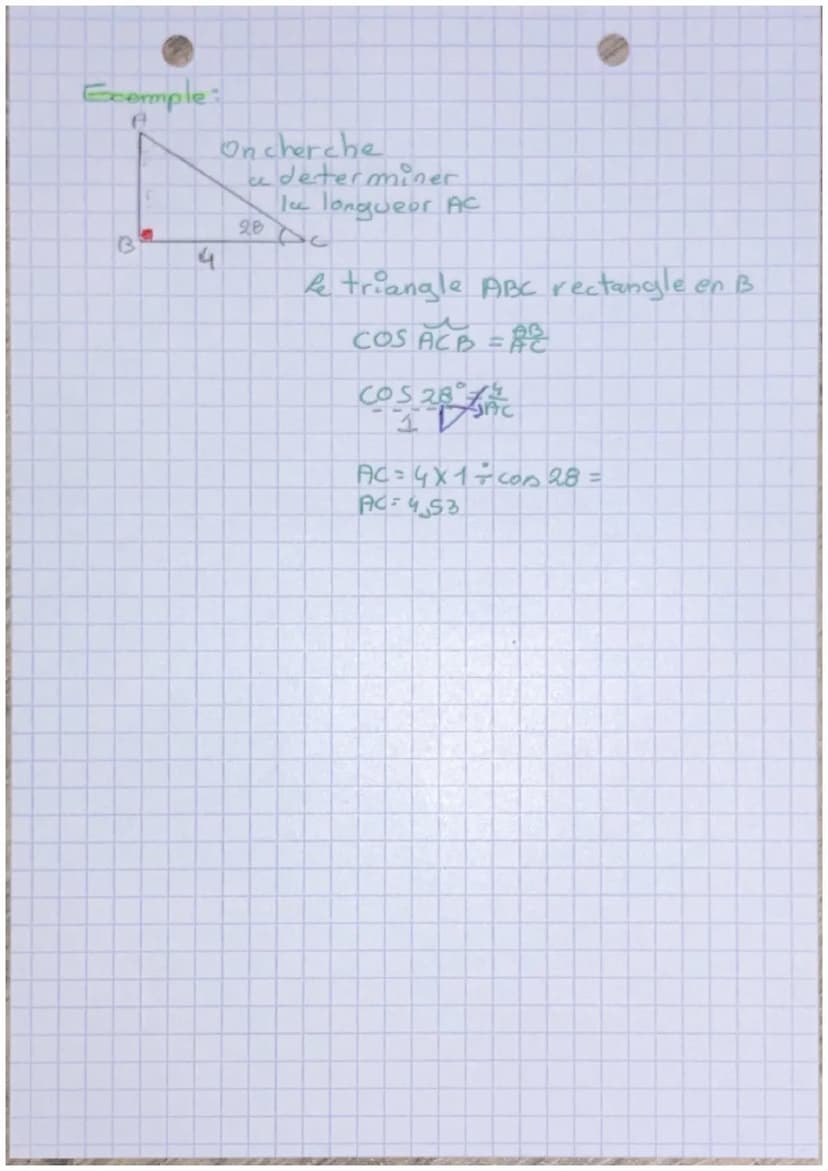 Exemple:
A
On cherche
a determiner
la longueor AC
28
B
C
4
Le triangle ABC rectangle en B
COS ACB = AB/AC
COS 28° = 4/AC
1
AC = 4 X 1 ÷ cos 28 =
AC = 4,53